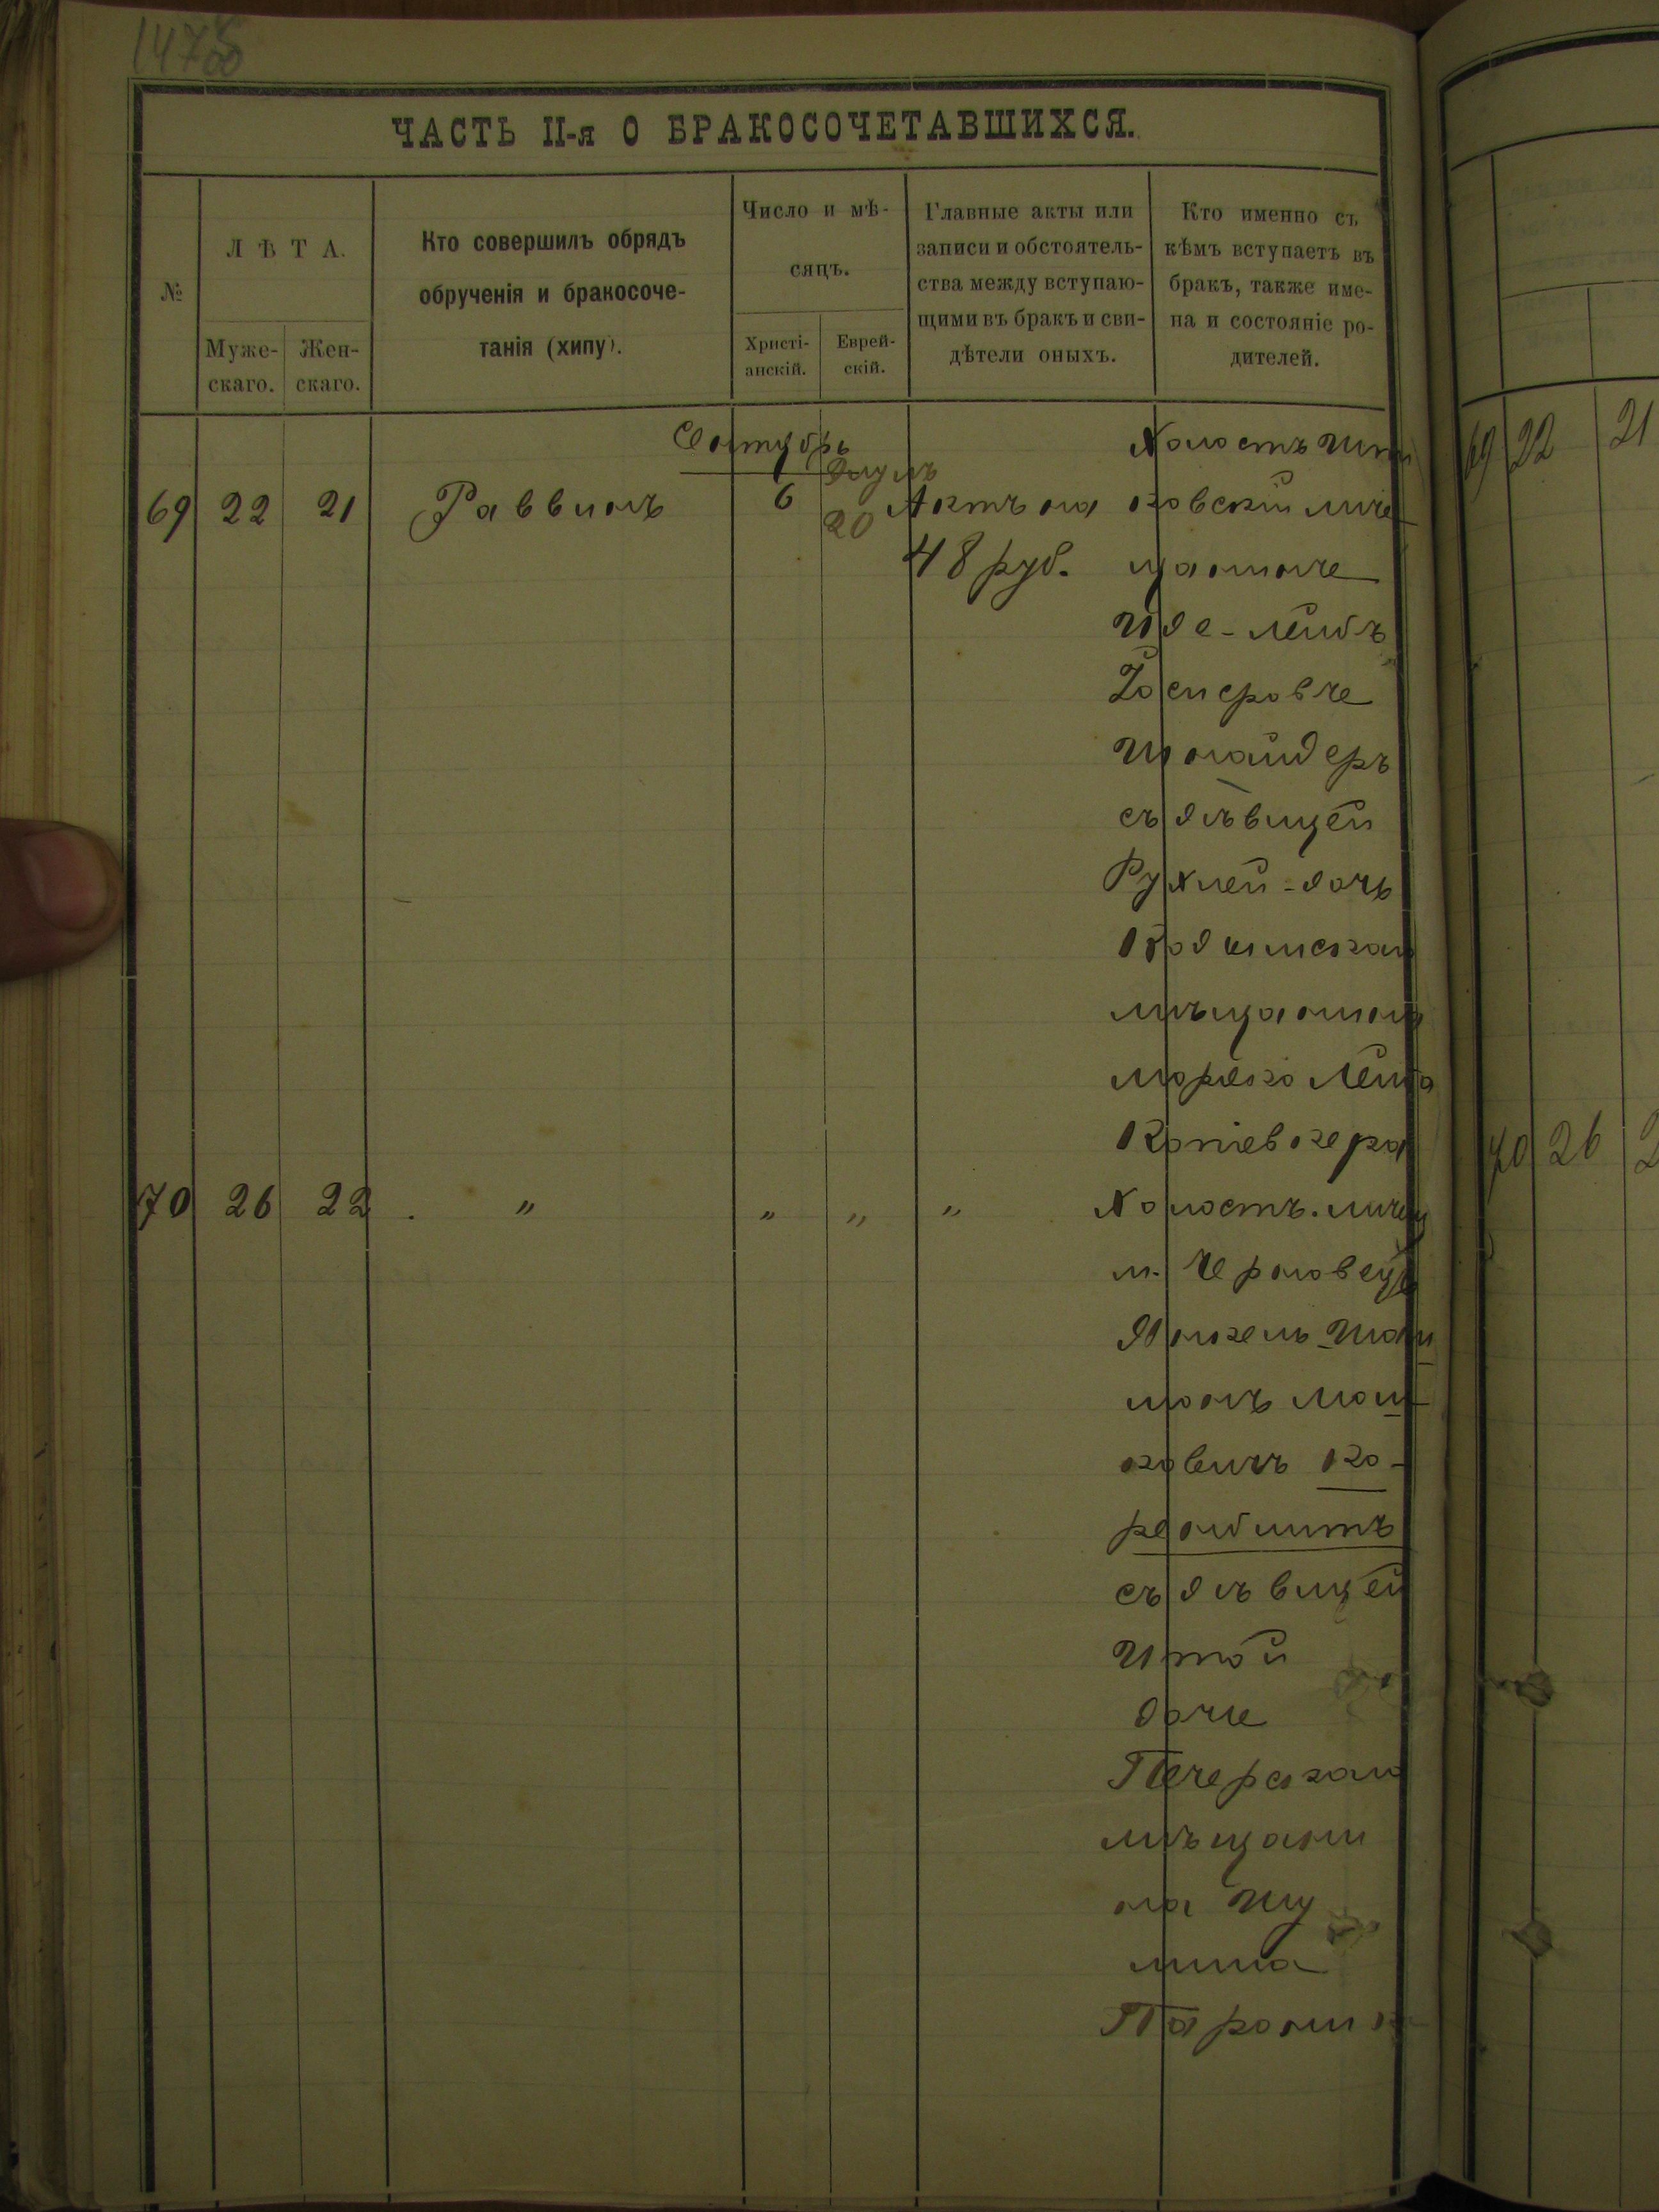 1475
ЧАСТЬ II-я О БРАКОСОЧЕТАВШИХСЯ.
№
ЛѢТА.
Муже-
скаго.
Жен-
скаго.
Кто совершилъ обрядъ
обрученія и бракосоче-
танія (хипу).
Число и мѣ-
сяцъ.
Христі-
анскій.
Еврей-
скій.
Главные акты или
записи и обстоятель-
ства между вступаю-
щими въ бракъ и сви-
дѣтели оныхъ.
Кто именно съ
кѣмъ вступаетъ въ
бракъ, также име-
на и состояніе ро-
дителей.
Сентябрь
Элулъ
69 22 21 Раввинъ 6 20 Актъ на
48 руб.
Холостъ
ковскій мѣ
щанинъ
Иде-Лейбъ
Іосифовъ
Шнайдеръ
съ дѣвицей
Рухлей-дочь
мѣщанина
Мордко Лейба
70 26 22 " " " "
Холостъ мѣщ
м. Черновецъ
Янкель-Шан
шонъ Мош
ковичъ Ко-
ренблитъ
съ дѣвицей
Итой
дочь
Печерская
мѣщани
на Шу
лима
69 22 21
70 26 2